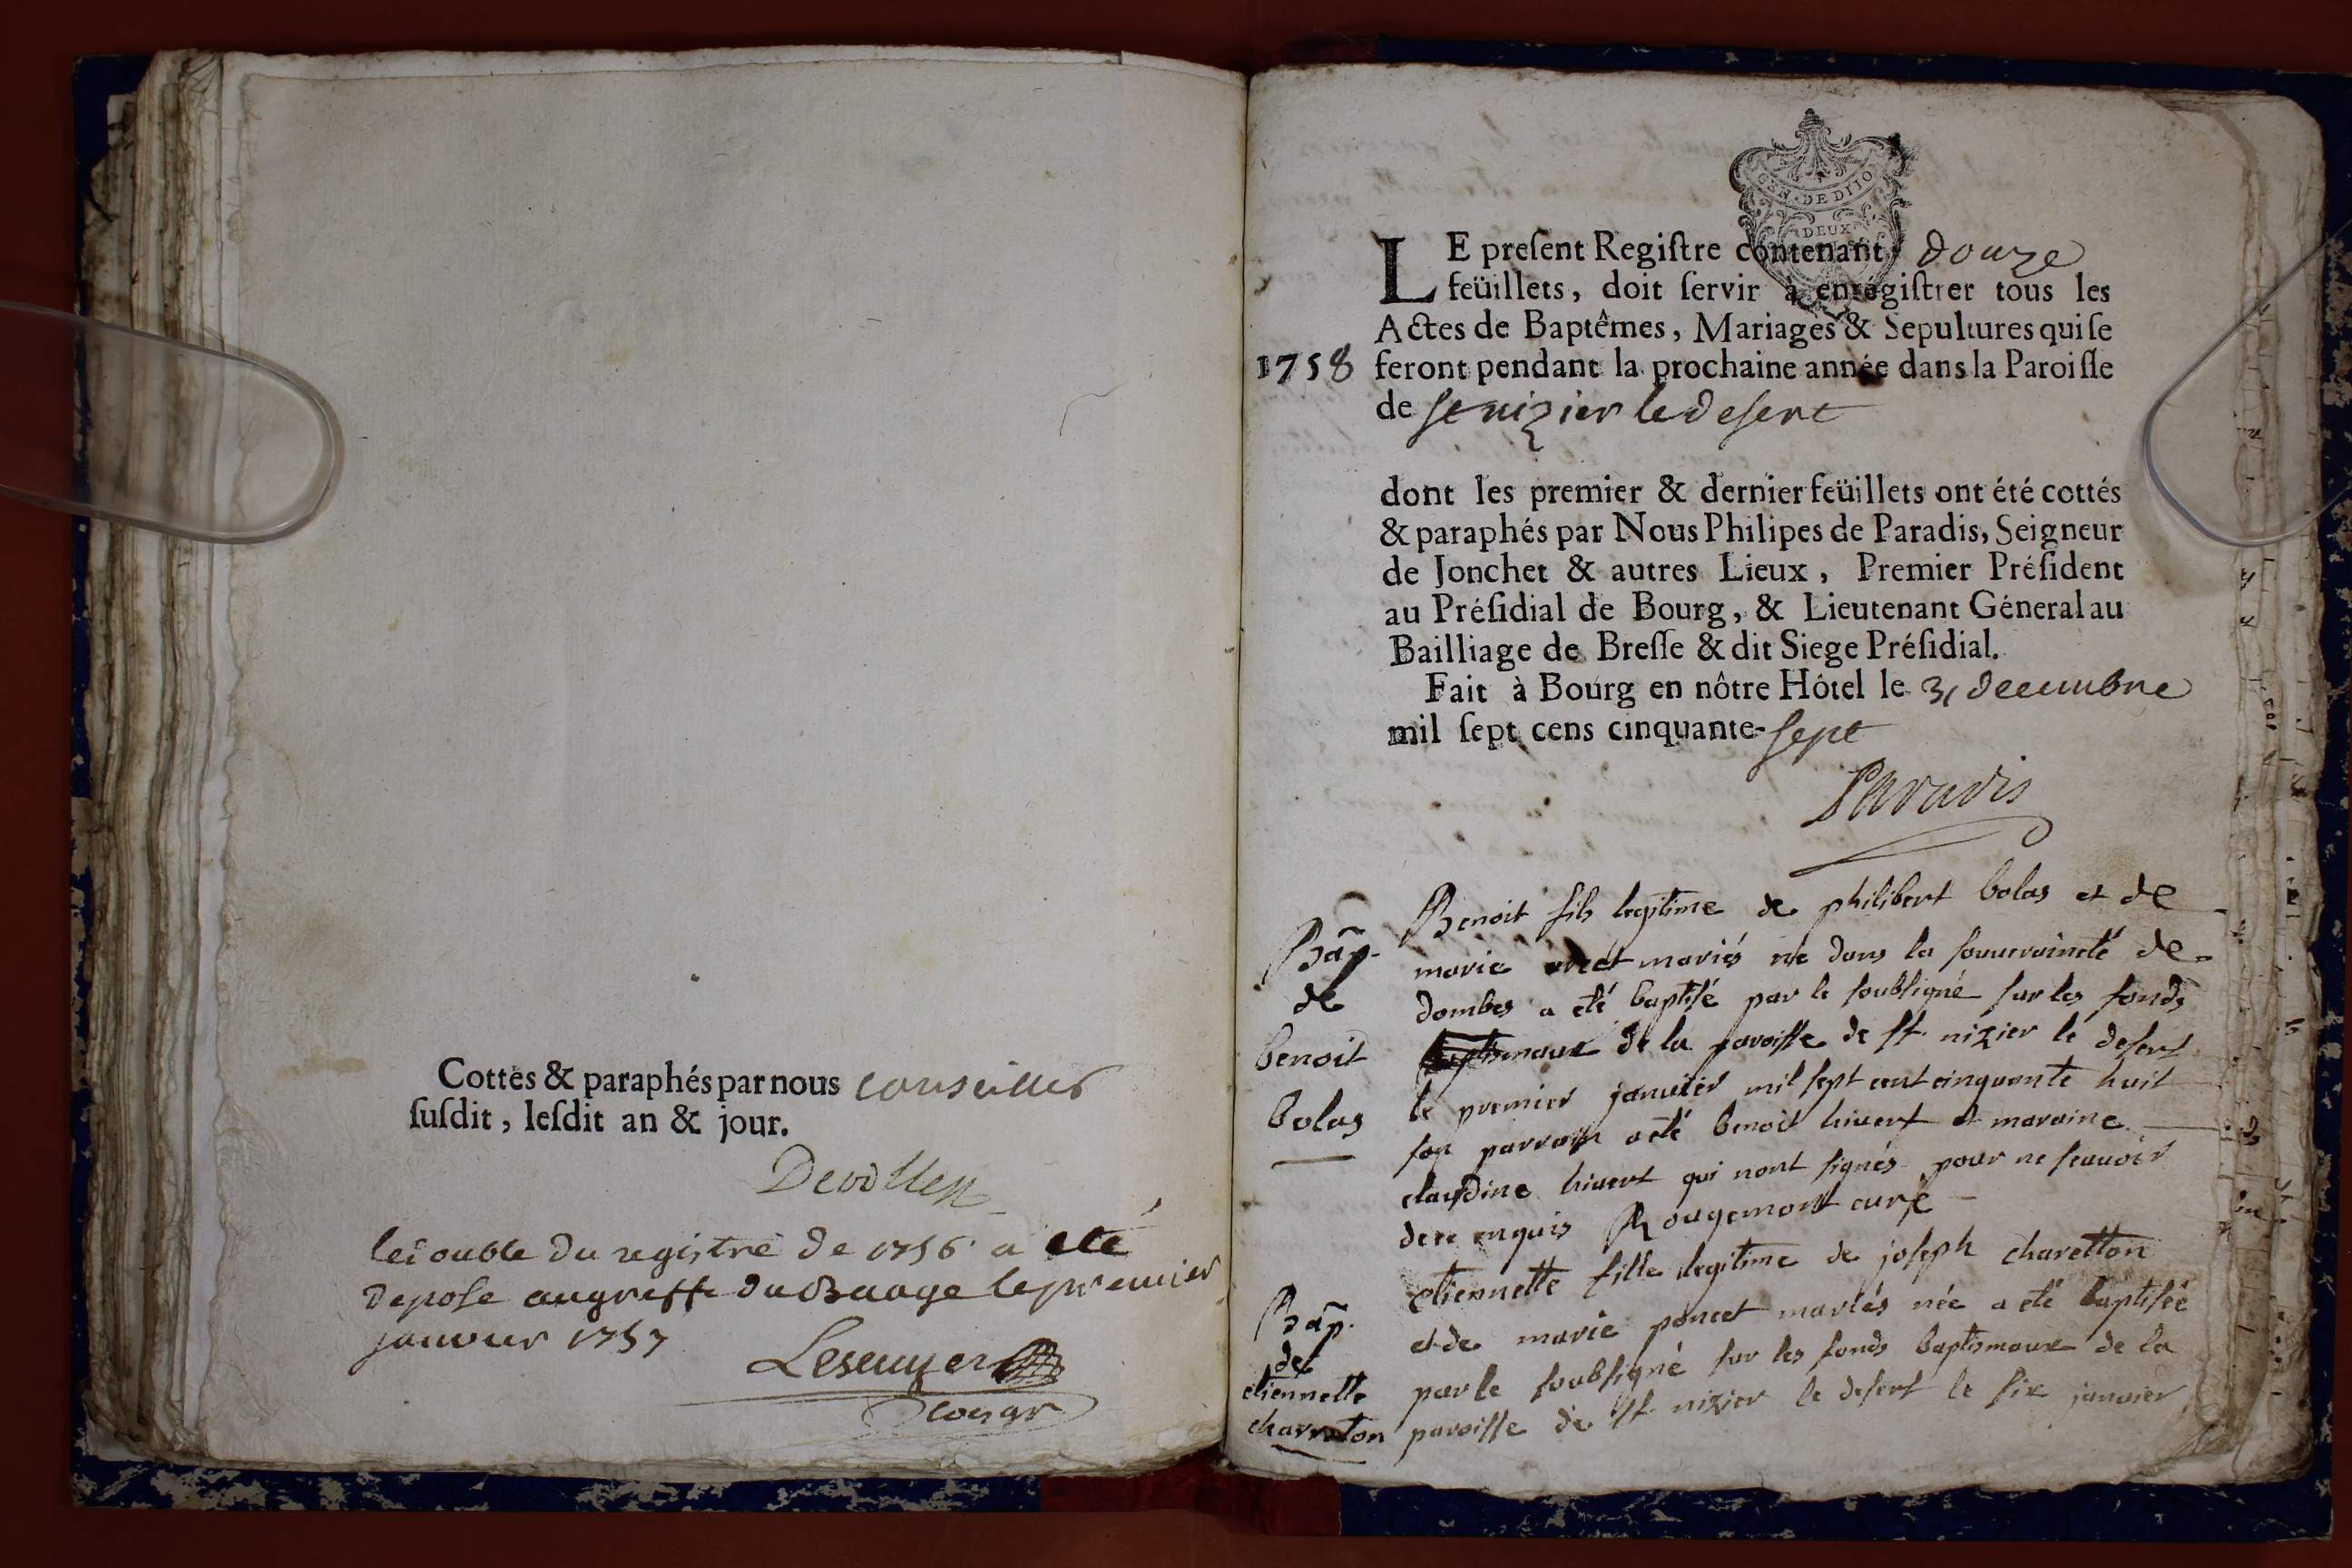 Cottés & paraphés par nous conseiller
susdit, lesdit an & jour.
le double du registre de 1756 a eté
deposé au greffe du Baage le premier
janvier 1757
Lescuyer
GEN. DE DIJO
DEUX
LE present Registre contenant douze
feüillets, doit servir à enregistrer tous les
Actes de Baptêmes, Mariages & Sepultures qui se
1758 feront pendant la prochaine année dans la Paroisse
de st nizier le desert
dont les premier & dernier feüillets ont été cottés
& paraphés par Nous Philipes de Paradis, Seigneur
de Jonchet & autres Lieux, Premier Président
au Présidial de Bourg, & Lieutenant Géneral au
Bailliage de Bresse & dit Siege Présidial.
Fait à Bourg en nôtre Hôtel le 31 decembre
mil sept cens cinquante-sept
Paradis
Bap.
de
benoit
bolas
Benoit fils legitime de philibert bolas et de
marie mariés né dans la souveraineté de
dombes a eté baptisé par le soubsigné sur les fonds
baptismaux de la paroisse de st nizier le desert
le premier janvier mil sept cent cinquante huit
son parrain a eté benoit hivert et maraine
claudine hivert qui nont signés pour ne scauoir
de ce enquis Rougemont curé
Bap.
de
etiennette
charreton
etiennette fille legitime de joseph charetton
et de marie poncet mariés née a eté baptisée
par le soubsigné sur les fonds baptismaux de la
paroisse de st nizier le desert le six janvier